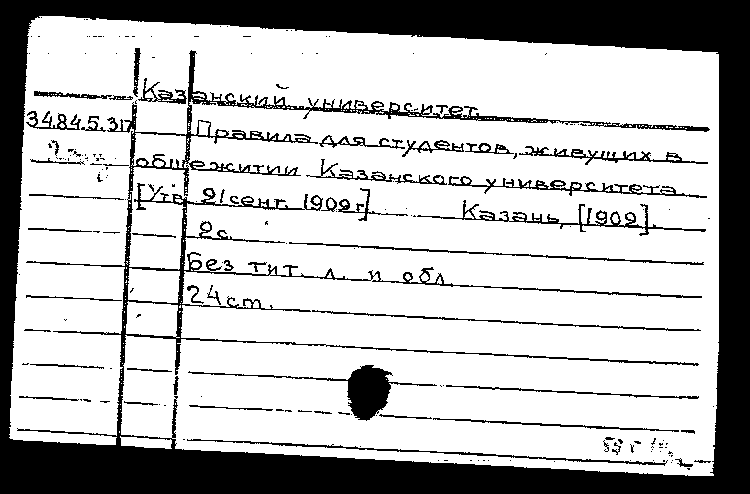 Казанский университет.
34.84.5.317
Правила для студентов, живущих в
общежитии Казанского университета.
[Утв. 21 сент. 1909 г.] Казань, [1909].
2 с.
Без тит. л. и обл.
24 cm.